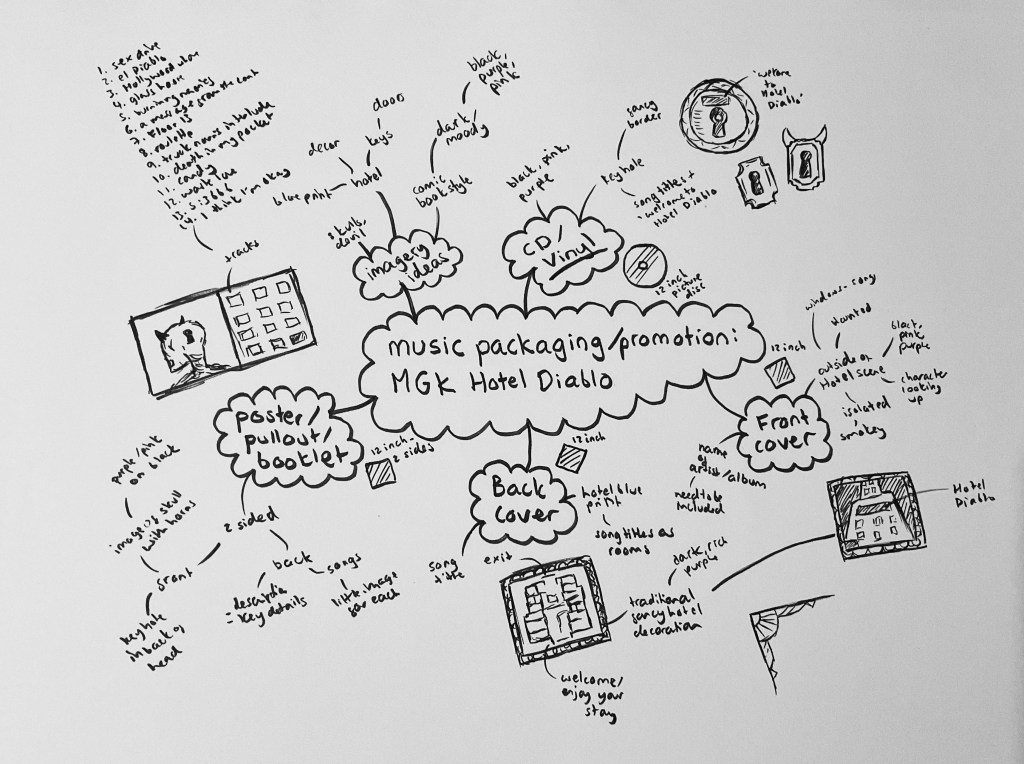 1. sex drive
2. el Diablo
3. Hollywood whore
4. glass house
5. burning memories
6. a message from the count
7. Floor 13
8. roulette
9. truck norris interlude
10. death in my pocket
11. candy
12. waste love
13. 5:3666
14. I think I'm okay
tracks
imagery
ideas
skulls,
devil
hotel
blue print
decor
keys
doors
comic
book style
dark,
moody
black,
purple,
pink
CD/
Vinyl
black, pink,
purple
key hole
fancy
border
song titles +
'welcome to
Hotel Diablo'
'welcome
to
Hotel
Diablo'
12 inch
picture
disc
music packaging/promotion:
MGK Hotel Diablo
Front
cover
12 inch
outside of
Hotel scene
windows - song
Haunted
black,
pink,
purple
character
looking
up
isolated
smokey
name
of
artist/album
need to be
included
Hotel
Diablo
Back
cover
12 inch
hotel blue
print
song titles as
rooms
song
title
exit
welcome/
enjoy your
stay
traditional
fancy hotel
decoration
dark, rich
purple
poster/
pullout/
booklet
12 inch -
2 sides
2 sided
front
image of skull
with horns
purple/pink
on black
key hole
in back of
head
back
= key details
songs
little image
for each